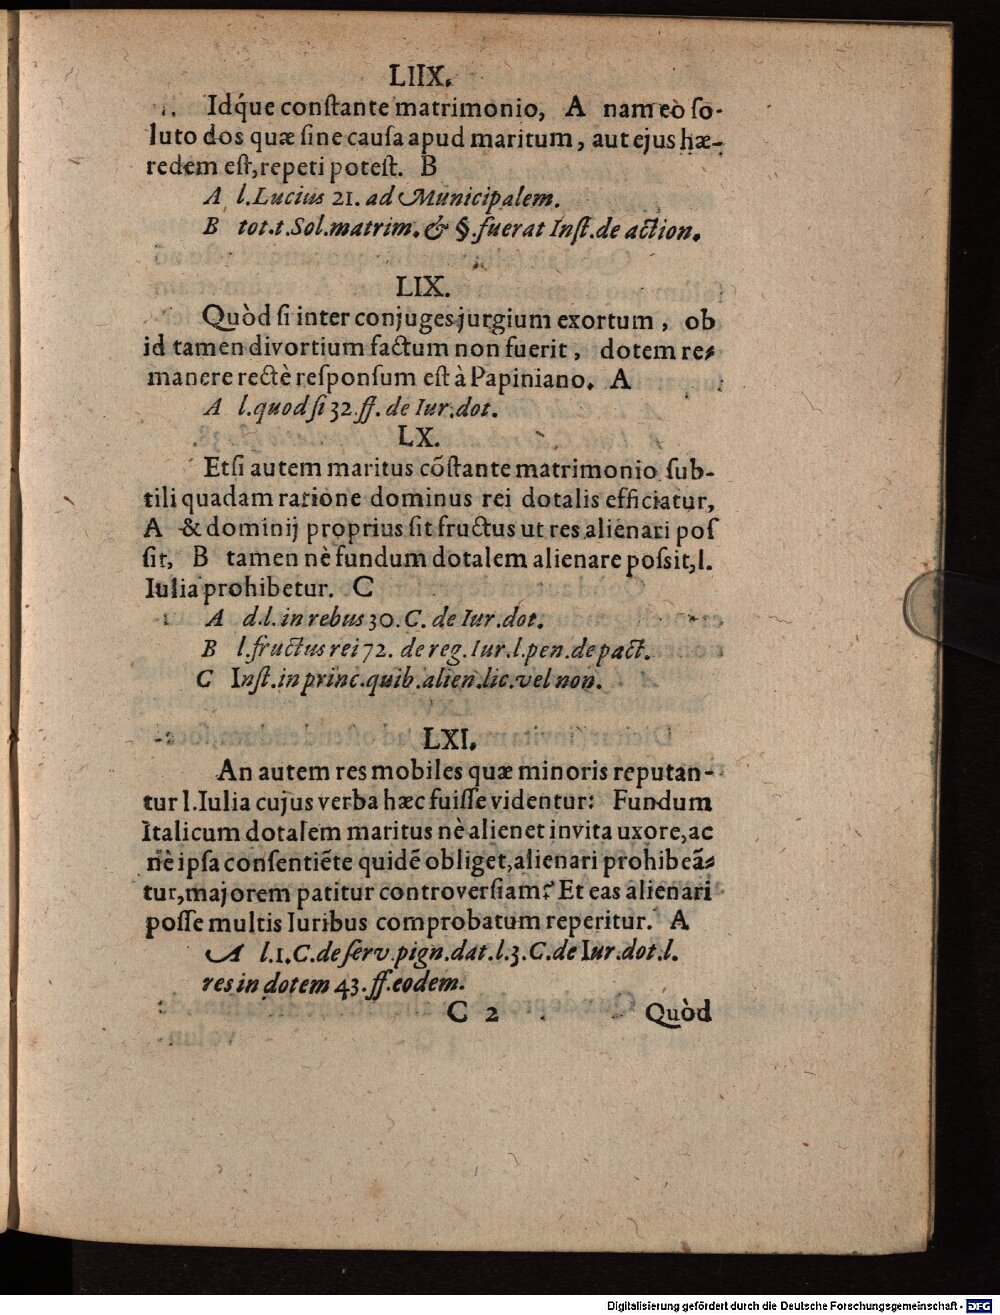 LIIX.
Idq́ue conſtante matrimonio, A nam eò ſo-
luto dos quæ ſine cauſa apud maritum, aut ejus hæ-
redem eſt, repeti poteſt. B
A l. Lucius 21. ad Municipalem.
B tot. t. Sol. matrim. & §. fuerat Inſt. de action.
LIX.
Quòd ſi inter conjuges jurgium exortum, ob
id tamen divortium factum non fuerit, dotem re-
manere rectè reſponſum eſt à Papiniano. A
A l. quod ſi 32. ff. de Iur. dot.
LX.
Etſi autem maritus cõſtante matrimonio ſub-
tili quadam ratione dominus rei dotalis efficiatur,
A & dominij proprius ſit fructus ut res alienari poſ
ſit, B tamen nè fundum dotalem alienare poſsit, l.
Iulia prohibetur. C
A d. l. in rebus 30. C. de Iur. dot.
B l. fructus rei 72. de reg. Iur. l. pen. de pact.
C Inſt. in princ. quib. alien. lic. vel non.
LXI.
An autem res mobiles quæ minoris reputan-
tur l. Iulia cujus verba hæc fuiſſe videntur: Fundum
Italicum dotalem maritus nè alienet invita uxore, ac
nè ipſa conſentiẽte quidẽ obliget, alienari prohibeã-
tur, majorem patitur controverſiam? Et eas alienari
poſſe multis Iuribus comprobatum reperitur. A
A l. 1. C. de ſerv. pign. dat. l. 3. C. de Iur. dot. l.
res in dotem 43. ff. eodem.
C 2 Quòd
Digitalisierung gefördert durch die Deutsche Forschungsgemeinschaft - DFG